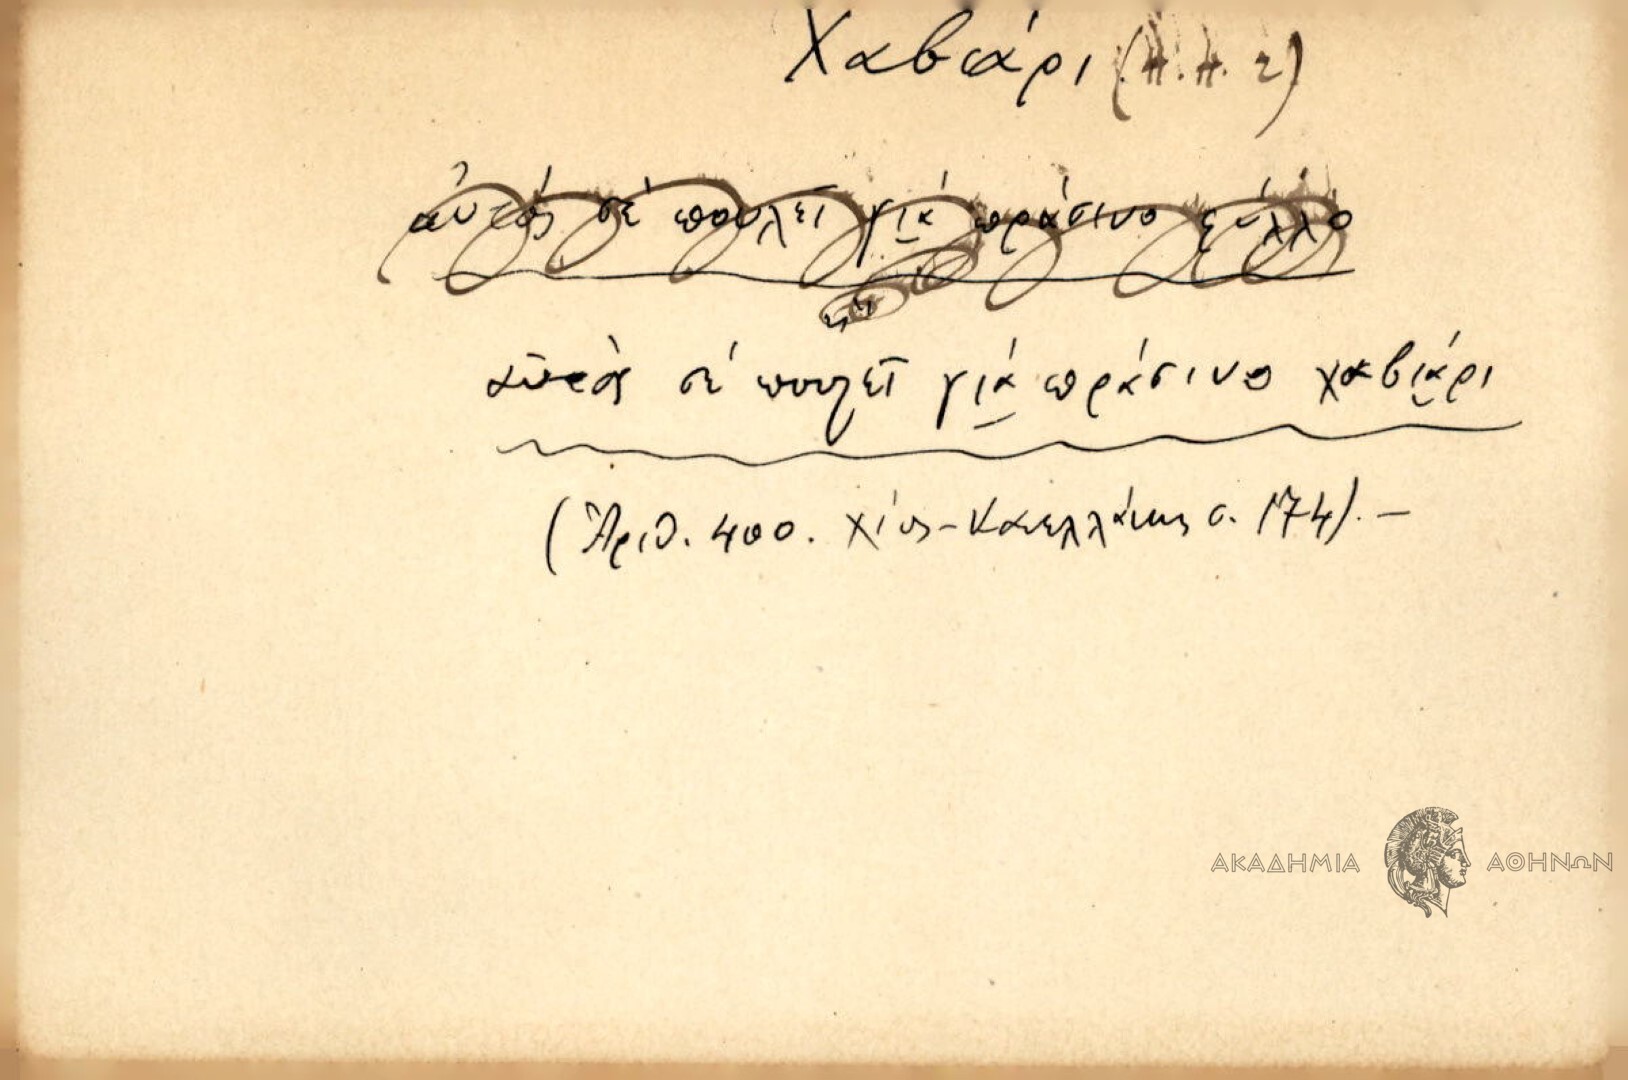 Χαβιάρι
αὐτός σέ πουλεῖ γιά πράσινο φύλλο
ἤ
αὐτὸς σέ πουλεῖ γιά πράσινο χαβιάρι
(Ἀριθ. 400. Χίος - Κανελλάκης σ. 174). —
ΑΚΑΔΗΜΙΑ ΑΘΗΝΩΝ